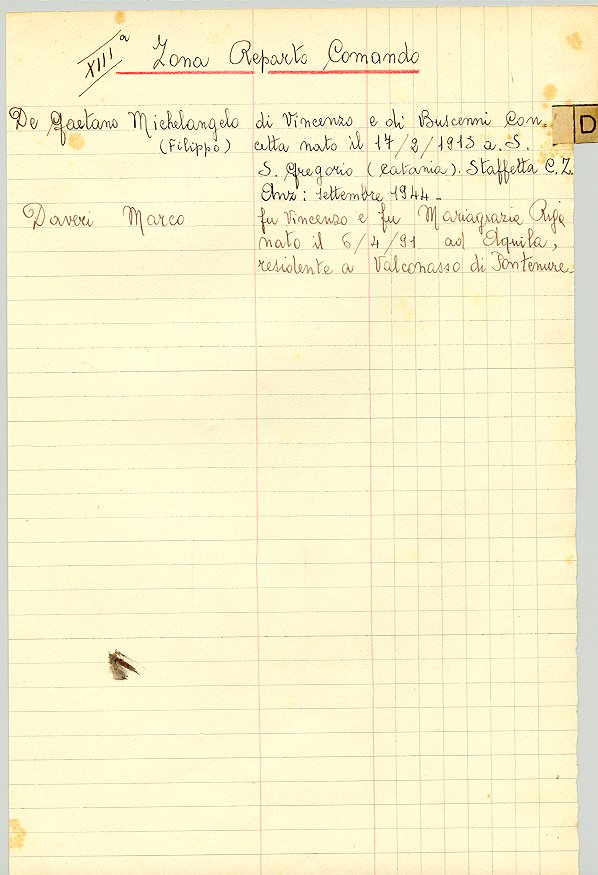 XIIIª Zona Reparto Comando
D
De Gaetano Michelangelo di Vincenzo e di Buscemi Con-
(Filippo) cetta nato il 17/2/1913 a S.
S. Gregorio (Catania). Staffetta C.Z.
Anz: settembre 1944-
Daveri Marco fu Vincenzo e fu Mariagrazia
nato il 6/4/91 ad Aquila,
residente a Valconasso di Pontenure.